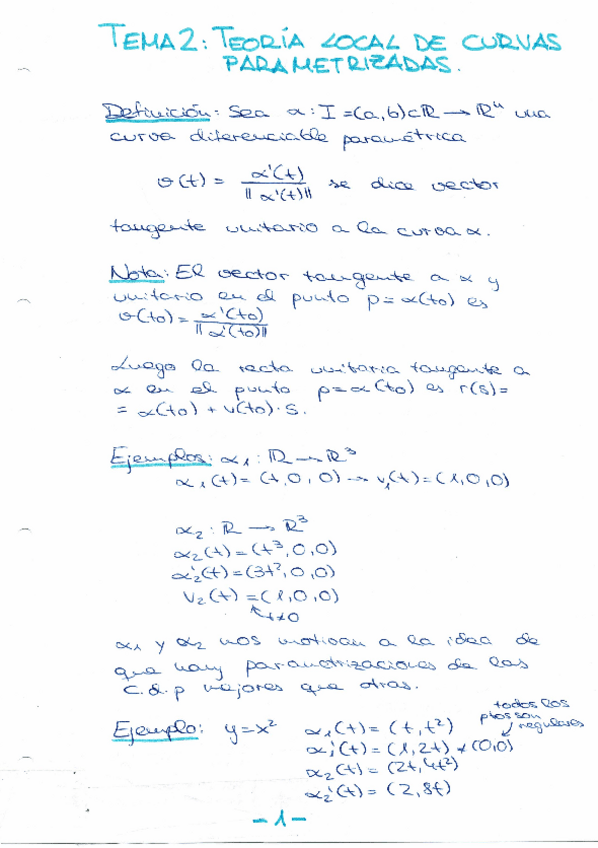 TEMA 2: TEORÍA LOCAL DE CURVAS
PARAMETRIZADAS.
Definición: Sea α: I = (a,b) ⊂ ℝ → ℝⁿ una
curva diferenciable paramétrica
v(t) = α'(t) / ||α'(t)|| se dice vector
tangente unitario a la curva α.
Nota: El vector tangente a α y
unitario en el punto p = α(t0) es
v(t0) = α'(t0) / ||α'(t0)||
Luego la recta unitaria tangente a
α en el punto p = α(t0) es r(s) =
= α(t0) + v(t0) · s.
Ejemplos: α1: ℝ → ℝ³
α1(t) = (t, 0, 0) → v1(t) = (1,0,0)
α2: ℝ → ℝ³
α2(t) = (t³, 0, 0)
α2'(t) = (3t², 0, 0)
v2(t) = (1, 0, 0)
t≠0
α1 y α2 nos motivan a la idea de
que hay parametrizaciones de las
c.d.p mejores que otras.
todos los
ptos son
regulares
Ejemplo: y = x² α1(t) = (t, t²)
α1'(t) = (1, 2t) ≠ (0,0)
α2(t) = (2t, 4t²)
α2'(t) = (2, 8t)
- 1 -